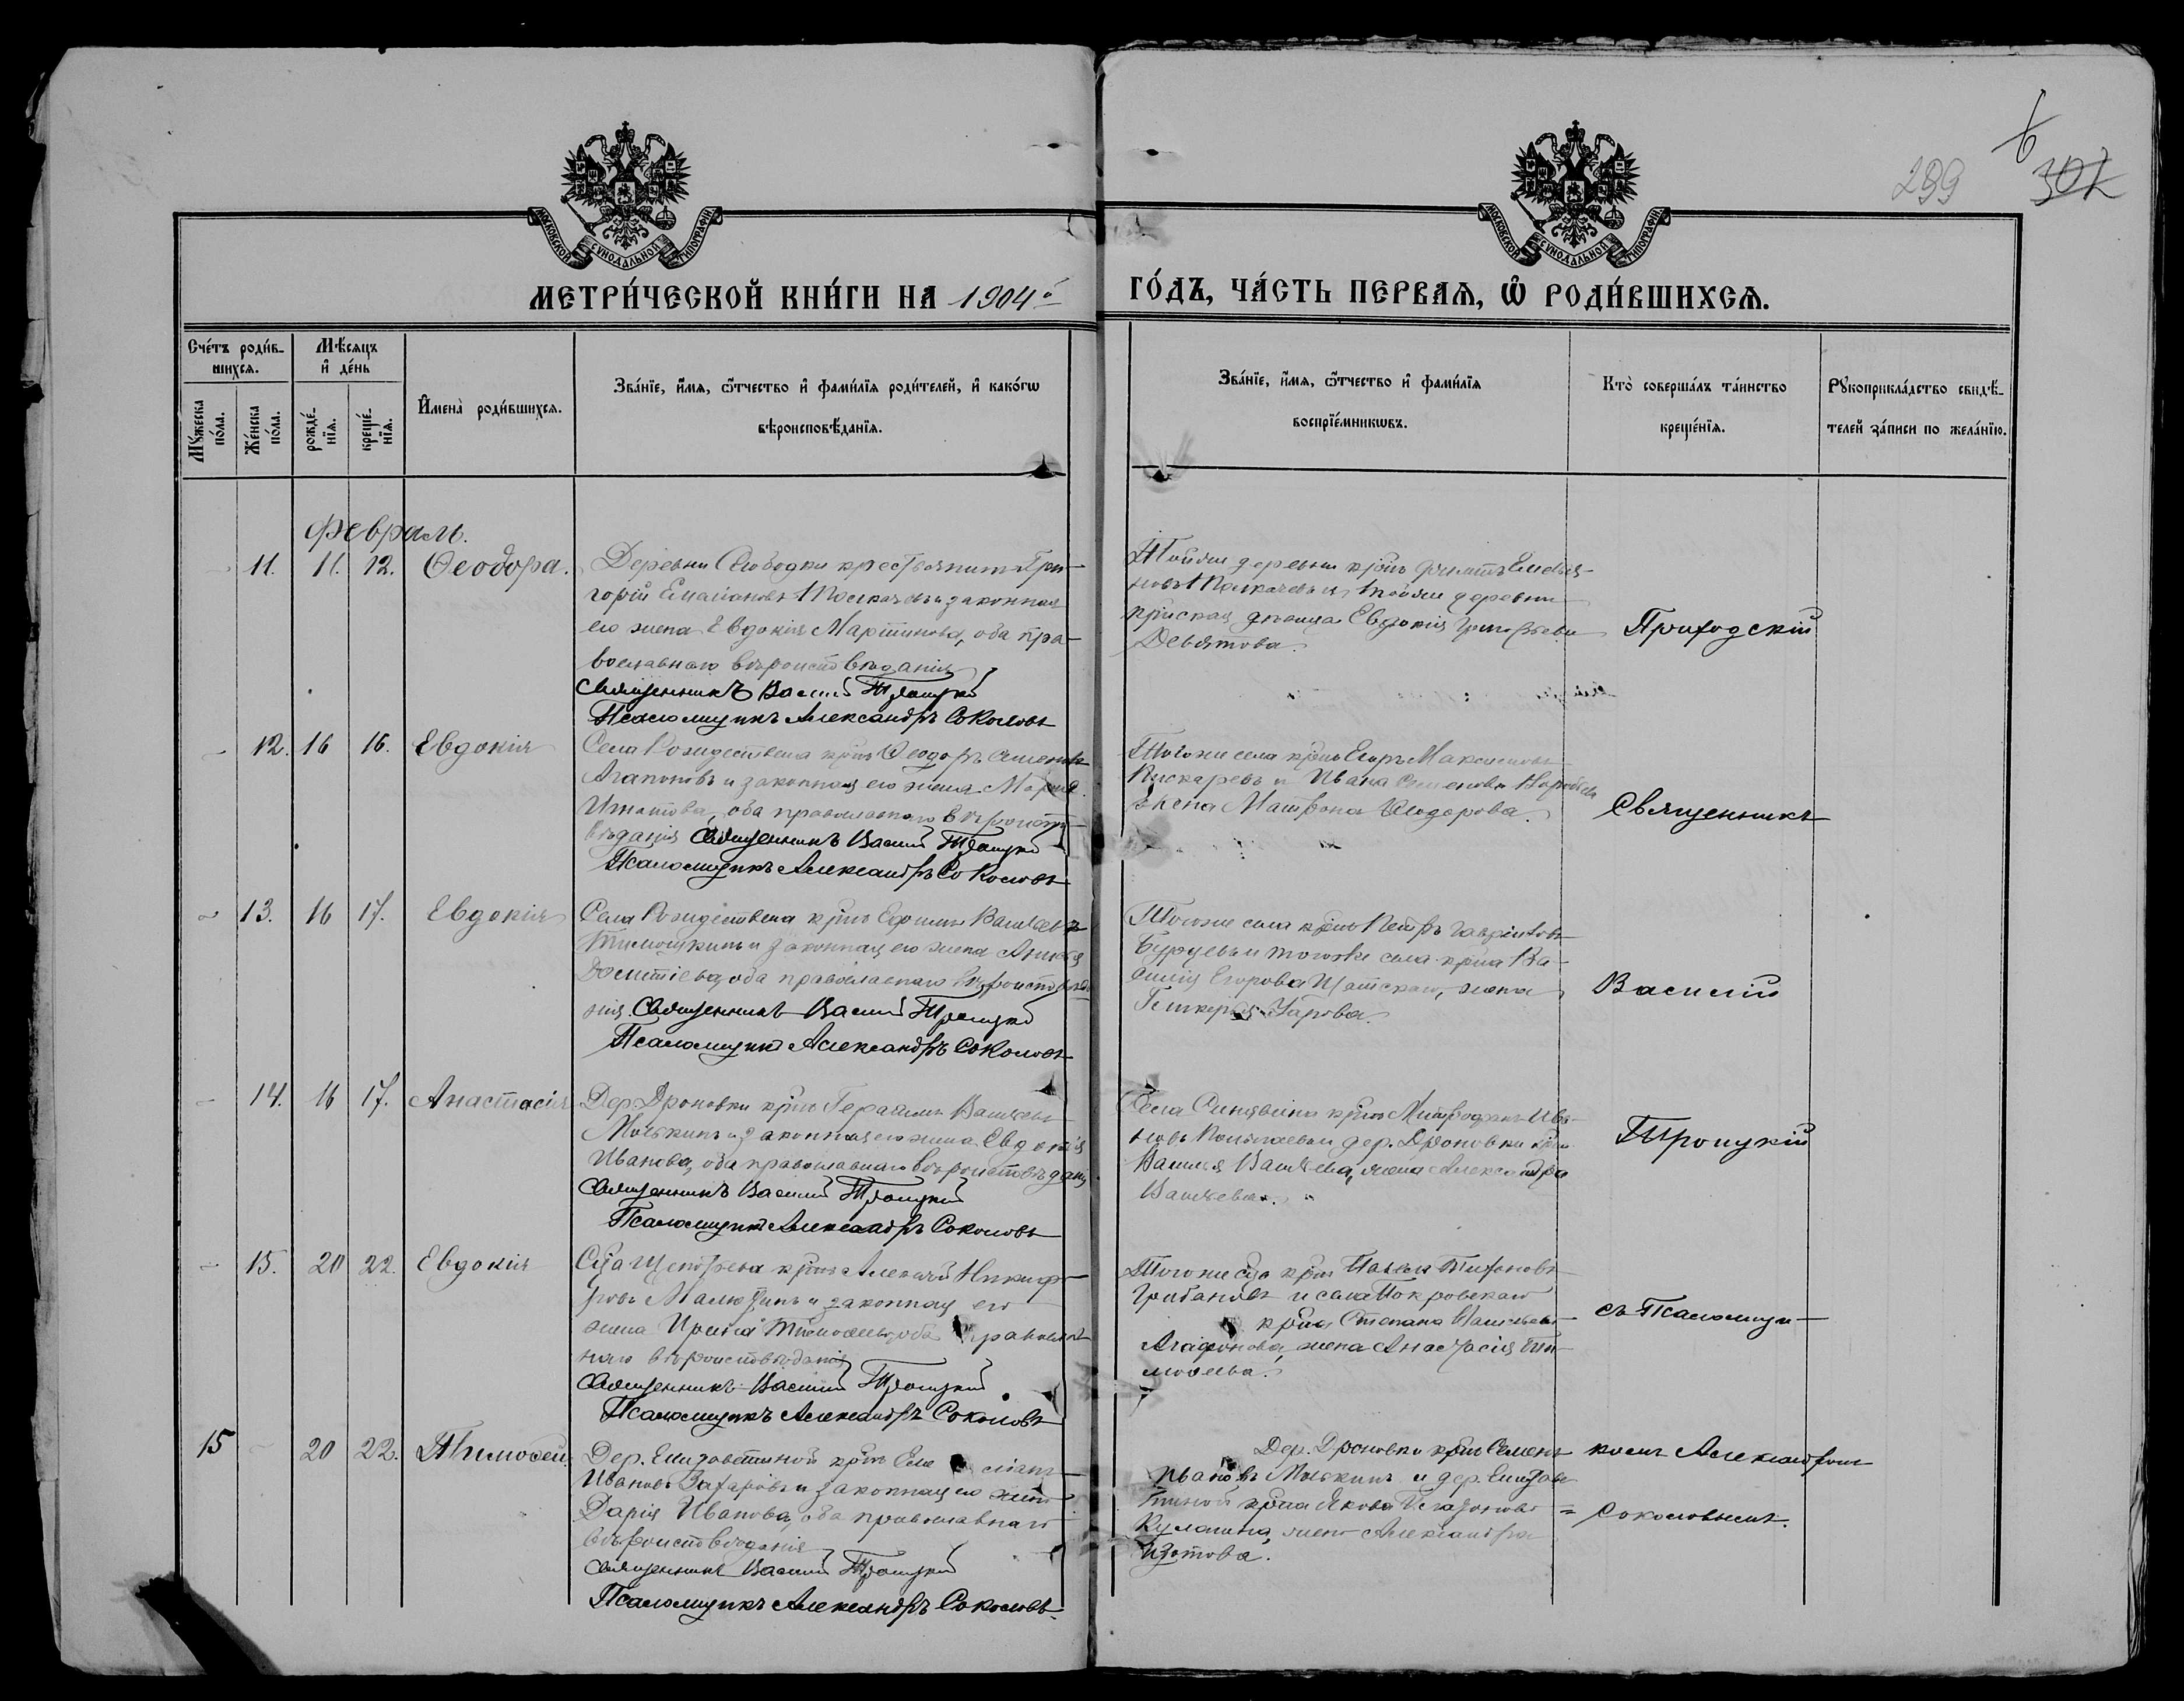 299
6
302
МОСКОВСКОЙ СѴНОДАЛЬНОЙ ТИПОГРАФІИ
МОСКОВСКОЙ СѴНОДАЛЬНОЙ ТИПОГРАФІИ
МЕТРИ́ЧЕСКОЙ КНИ́ГИ НА 1904й
ГО́ДЪ, ЧА́СТЬ ПЕРВАѦ, Ѿ РОДИ́ВШИХСѦ.
Сче́тъ роди́в-
шихсѧ.
Мꙋ́жеска по́ла.
Же́нска по́ла.
Мѣ́сѧцъ
и҆ де́нь
рожде́-
нїѧ.
креще́-
нїѧ.
И҆мена̀ роди́вшихсѧ.
Зва́нїе, и҆́мѧ, ѻ҆́тчество и҆ фами́лїѧ роди́телей, и҆ како́гѡ
вѣроисповѣ́данїѧ.
Зва́нїе, и҆́мѧ, ѻ҆́тчество и҆ фами́лїѧ
воспрїе́мникѡвъ.
Кто̀ соверша́лъ та́инство
креще́нїѧ.
Рꙋкоприкла́дство свидѣ́-
телей за́писи по жела́нїю.
Февраль.
11. 11. 12. Ѳеодора.
Деревни Слободки крестьянинъ Гри-
горій Емеліановъ и законная
его жена Евдокія Мартинова, оба пра-
вославнаго вѣроисповѣданія
Священникъ Василій Троицкій
Псаломщикъ Александръ Соколовъ
Тойже деревни крнъ Филиппъ Емелья-
новъ и тойже деревни
крнская дѣвица Евдокія Григорьева
Девятова.
Приходскій
12. 16 16. Евдокія
Села Рождествена крнъ Ѳеодоръ Семеновъ
Агапоновъ и законная его жена Марія
Игнатова, оба православнаго вѣроиспо-
вѣданія Священникъ Василій Троицкій
Псаломщикъ Александръ Соколовъ
Тогоже села крнъ Егоръ Максимовъ
Пискаревъ и Ивана Семенова Воробьева
жена Матрона Ѳеодорова.
Священникъ
13. 16 17. Евдокія
Села Рождествена крнъ Ефимъ Васильевъ
Тимошкинъ и законная его жена
оба православнаго вѣроисповѣда-
нія. Священникъ Василій Троицкій
Псаломщикъ Александръ Соколовъ
Тогоже села крнъ Петръ Гавріиловъ
Бурцевъ и тогоже села крна Ва-
силія Егорова жена
Гликерія Уарова.
Василій
14. 16 17. Анастасія
Дер. Дроновки крнъ Герасимъ Васильевъ
Молькинъ и законная его жена Евдокія
Иванова, оба православнаго вѣроисповѣданія
Священникъ Василій Троицкій
Псаломщикъ Александръ Соколовъ
Села Синявина крнъ Митрофанъ Ива-
новъ и дер. Дроновки крна
Василья Васильева, жена Александра
Васильева.
Троицкій
15. 20 22. Евдокія
крнъ Алексѣй Никифо-
ровъ Малютинъ и законная его
жена Ирина Тимоѳеева, оба православ-
наго вѣроисповѣданія
Священникъ Василій Троицкій
Псаломщикъ Александръ Соколовъ
Тогоже крнъ Павелъ Тихоновъ
Грибановъ и села Покровскаго
крна Степана Васильева
Агафонова, жена Анастасія Ти-
моѳеева.
съ Псаломщи-
15 20 22. Тимоѳей.
Дер. Елизаветиной крнъ Емеліанъ
Ивановъ Захаровъ и законная его жена
Дарія Иванова, оба православнаго
вѣроисповѣданія
Священникъ Василій Троицкій
Псаломщикъ Александръ Соколовъ
Дер. Дроновки крнъ Семенъ
Ивановъ Молькинъ и дер. Елизаве-
тиной крна Якова
Кулагина, жена Александра
Изотова.
комъ Александромъ
Соколовымъ.